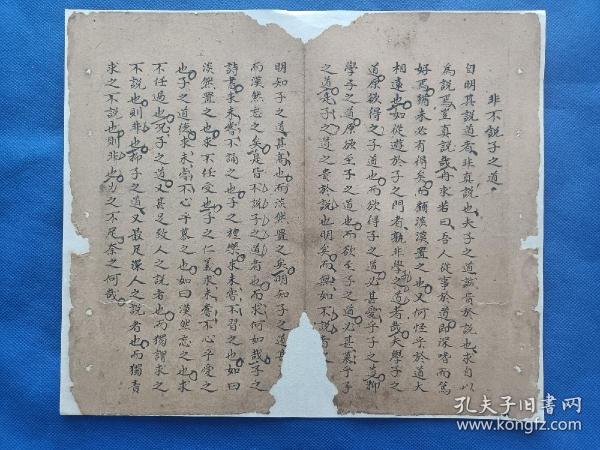 非不說子之道
自明其說道者非真說也夫子之道誠貴於說也求自以
為說焉豈真說哉冉求若曰吾人從事於道即深嗜而篤
好焉猶未必有得矣而顧淡漠置之也又何怪乎於道大
相遠也如從遊於子之門者孰非學之道者哉夫學子之
道原欲得之子道也而欲得子之道必甚愛乎子之道抑
學子之道原欲至子之道也而欲至子之道必甚慕乎子
之道是子之道之貴於說也明矣而無如不說者
明知子之道甚高也而淡然置之矣明知子之道甚
而漠然忘之矣是皆不說子之道者也而求何如哉子之
詩書求未嘗不誦之也子之禮樂求未嘗不習之也如曰
淡然置之也求不任受也子之仁義求未嘗不心乎愛之
也子之道德求未嘗不心乎慕之也如曰漠然忘之也求
不任過也況子之道又甚足致人之說者也而獨謂求之
不說也則非也抑子之道又最足深人之說者也而獨責
求之不說也則非也力之不足奈之何哉
孔夫子旧书网
www.kongfz.com